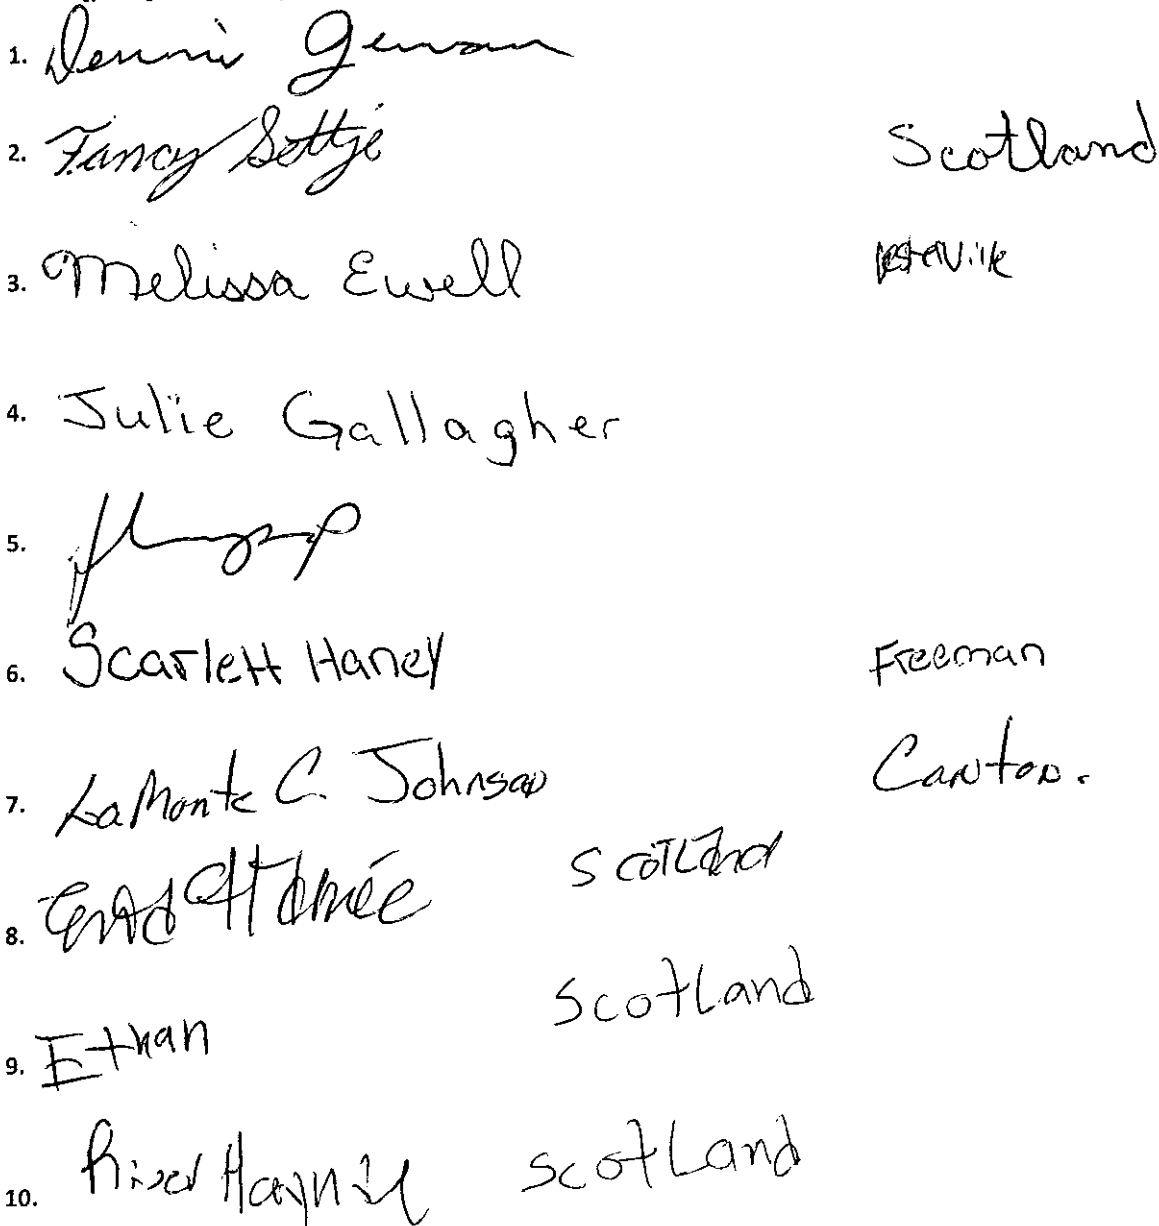 1.
2. Fancy Sottje Scotland
3. Melissa Ewell
4. Julie Gallagher
5.
6. Scarlett Haney Freeman
7. LaMonte C. Johnson Canton.
8. Scotland
9. Ethan Scotland
10. River Haynie Scotland